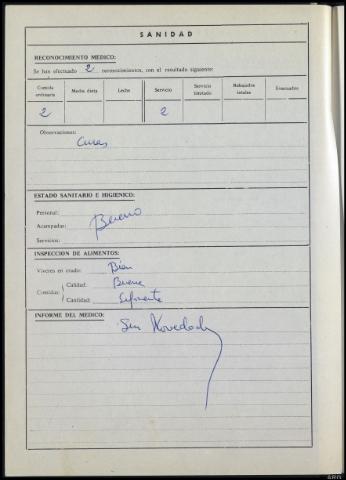 SANIDAD
RECONOCIMIENTO MEDICO:
Se han efectuado 2 reconocimientos, con el resultado siguiente:
Comida ordinaria Media dieta Leche Servicio Servicio limitado Rebajados totales Evacuados
2 2
Observaciones:
Curas
ESTADO SANITARIO E HIGIENICO:
Personal:
Acampada: Bueno
Servicios:
INSPECCION DE ALIMENTOS:
Víveres en crudo: Bien
Comidas: Calidad: Buena
Cantidad: Suficiente
INFORME DEL MEDICO:
Sin Novedad